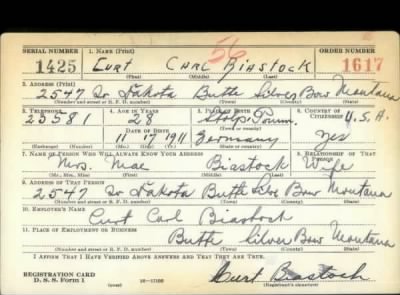 SERIAL NUMBER 1. NAME (Print) 56 ORDER NUMBER
1425 CURT CARL BIASTOCK 1617
(First) (Middle) (Last)
2. ADDRESS (Print)
2547 So Dakota Butte Silver Bow Montana
(Number and street or R. F. D. number) (Town) (County) (State)
3. TELEPHONE 4. AGE IN YEARS 5. PLACE OF BIRTH 6. COUNTRY OF CITIZENSHIP
23581 28 Stolp, Pomm. U.S.A.
DATE OF BIRTH
11 17 1911 Germany Yes
(Exchange) (Number) (Mo.) (Day) (Yr.) (State or country)
7. NAME OF PERSON WHO WILL ALWAYS KNOW YOUR ADDRESS 8. RELATIONSHIP OF THAT PERSON
Mrs. Mae Biastock Wife
(Mr., Mrs., Miss) (First) (Middle) (Last)
9. ADDRESS OF THAT PERSON
2547 So Dakota Butte Silver Bow Montana
(Number and street or R. F. D. number) (Town) (County) (State)
10. EMPLOYER'S NAME
Curt Carl Biastock
11. PLACE OF EMPLOYMENT OR BUSINESS
Butte Silver Bow Montana
(Number and street or R. F. D. number) (Town) (County) (State)
I AFFIRM THAT I HAVE VERIFIED ABOVE ANSWERS AND THAT THEY ARE TRUE.
REGISTRATION CARD
D. S. S. Form 1 Curt Biastock
(over) (Registrant's signature)